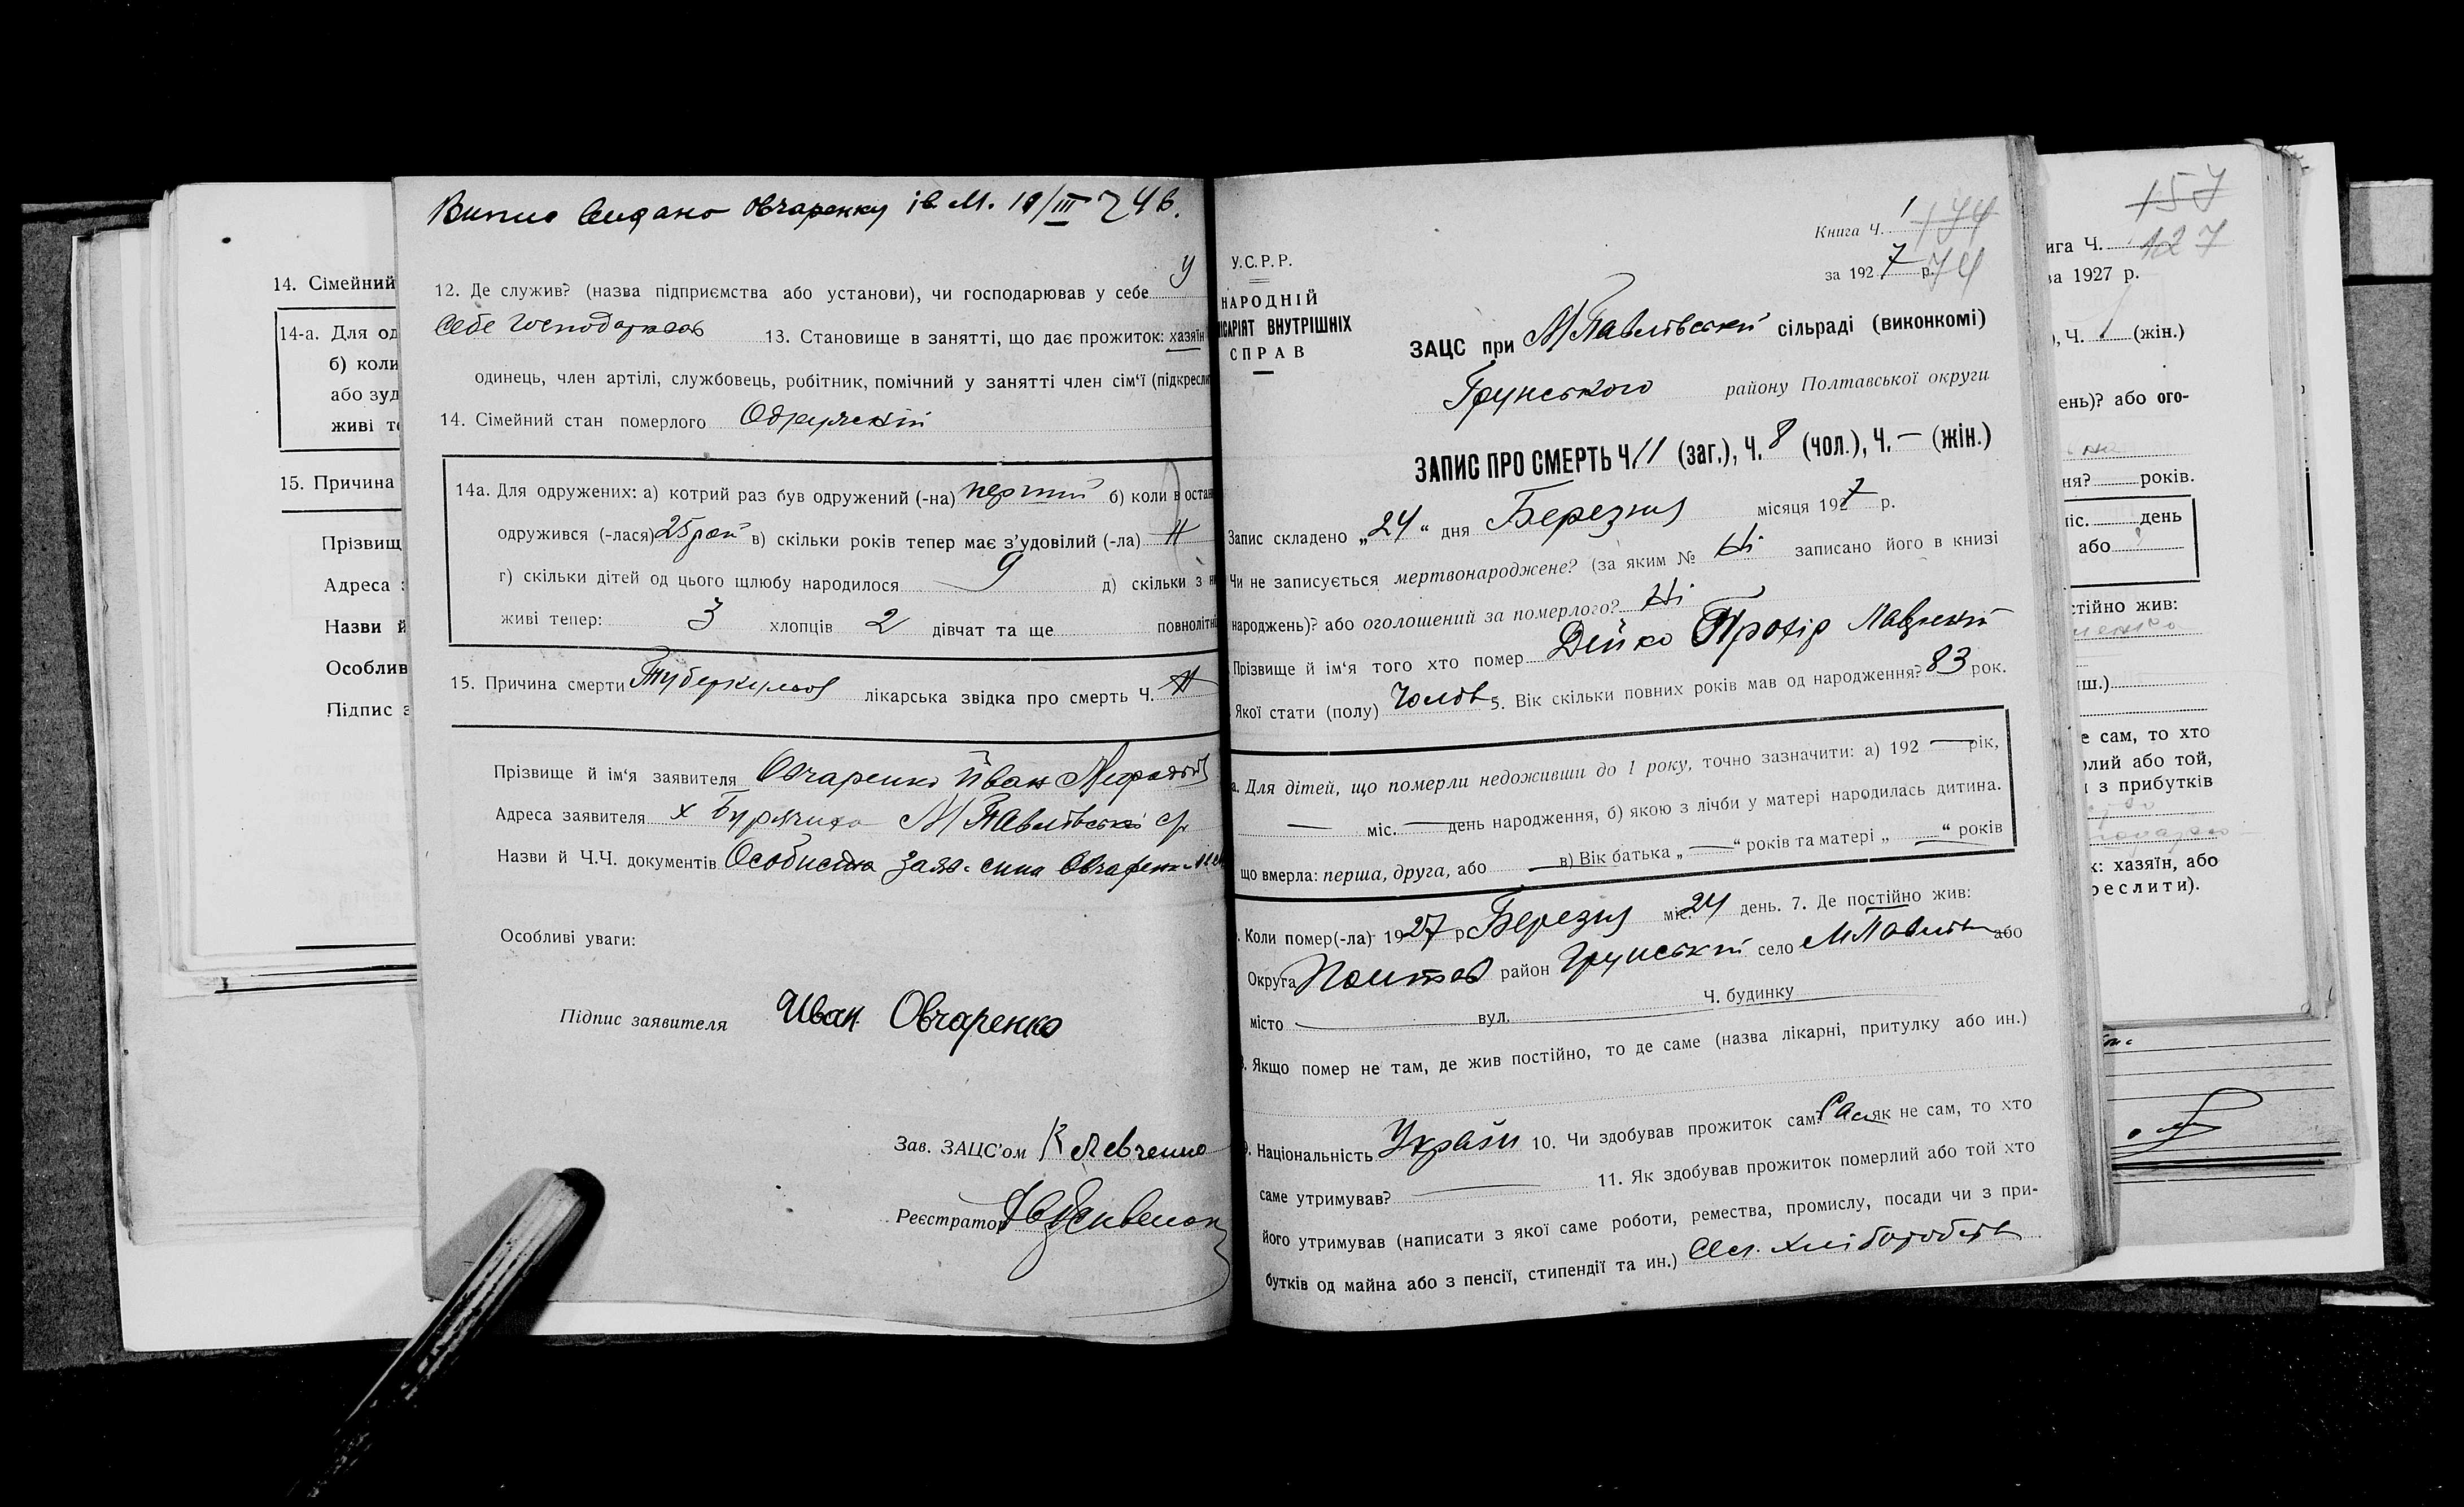 14. Сімейний
14-а. Для од
б) коли
або зуд
живі т
15. Причина
Прізвищ
Адреса
Назви й
Особлив
Підпис з
Випис видано Овчаренку Ів. М.
12. Де служив? (назва підприємства або установи), чи господарював у себе у
себе господарював 13. Становище в занятті, що дає прожиток: хазяїн
одинець, член артілі, службовець, робітник, помічний у занятті член сім'ї (підкресли
14. Сімейний стан померлого Одружений
14а. Для одружених: а) котрий раз був одружений (-на) перший б) коли в остан
одружився (-лася) 25 рок в) скільки років тепер має з'удовілий (-ла)
г) скільки дітей од цього щлюбу народилося 9 д) скільки з н
живі тепер: 3 хлопців 2 дівчат та ще повнолітні
15. Причина смерти Туберкульоз лікарська звідка про смерть Ч.
Прізвище й ім'я заявителя Овчаренко Йван
Адреса заявителя х М/Павлівської с/р
Назви й Ч.Ч. документів Особиста заяв. сина Овчаренк
Особливі уваги:
Підпис заявителя Иван Овчаренко
Зав. ЗАЦС'ом К Левченко
Реєстратор
Книга Ч. 1 174
за 1927 р. 74
У.С.Р.Р.
НАРОДНІЙ
ІСАРІЯТ ВНУТРІШНІХ
СПРАВ
ЗАЦС при М/Павлівській сільраді (виконкомі)
Грунського району Полтавської округи
ЗАПИС ПРО СМЕРТЬ Ч. 11 (заг.), Ч. 8 (чол.), Ч. — (жін.)
Запис складено „24“ дня Березня місяця 1927 р.
Чи не записується мертвонароджене? (за яким № Ні записано його в книзі
народжень)? або оголошений за померлого? Ні
Прізвище й ім'я того хто помер Дейко Прохір
Якої стати (полу) Чолов 5. Вік скільки повних років мав од народження? 83 рок.
а. Для дітей, що померли недоживши до 1 року, точно зазначити: а) 192 — рік,
— міс. — день народження, б) якою з лічби у матері народилась дитина.
що вмерла: перша, друга, або в) Вік батька „—“ років та матері „—“ років
Коли помер(-ла) 1927 р Березня міс. 24 день. 7. Де постійно жив:
Округа Полтав район Грунський село М Павлів або
місто вул. Ч. будинку
8. Якщо помер не там, де жив постійно, то де саме (назва лікарні, притулку або ин.)
9. Національність Україн 10. Чи здобував прожиток сам? Сам як не сам, то хто
саме утримував? — 11. Як здобував прожиток померлий або той хто
його утримував (написати з якої саме роботи, ремества, промислу, посади чи з при-
бутків од майна або з пенсії, стипендії та ин.) Сел. хліборобств
157
ига Ч. 127
за 1927 р.
), Ч. (жін.)
ень)? або ого-
ня? років.
іс. день
або
стійно жив:
иш.)
е сам, то хто
рлий або той,
з прибутків
к: хазяїн, або
реслити).